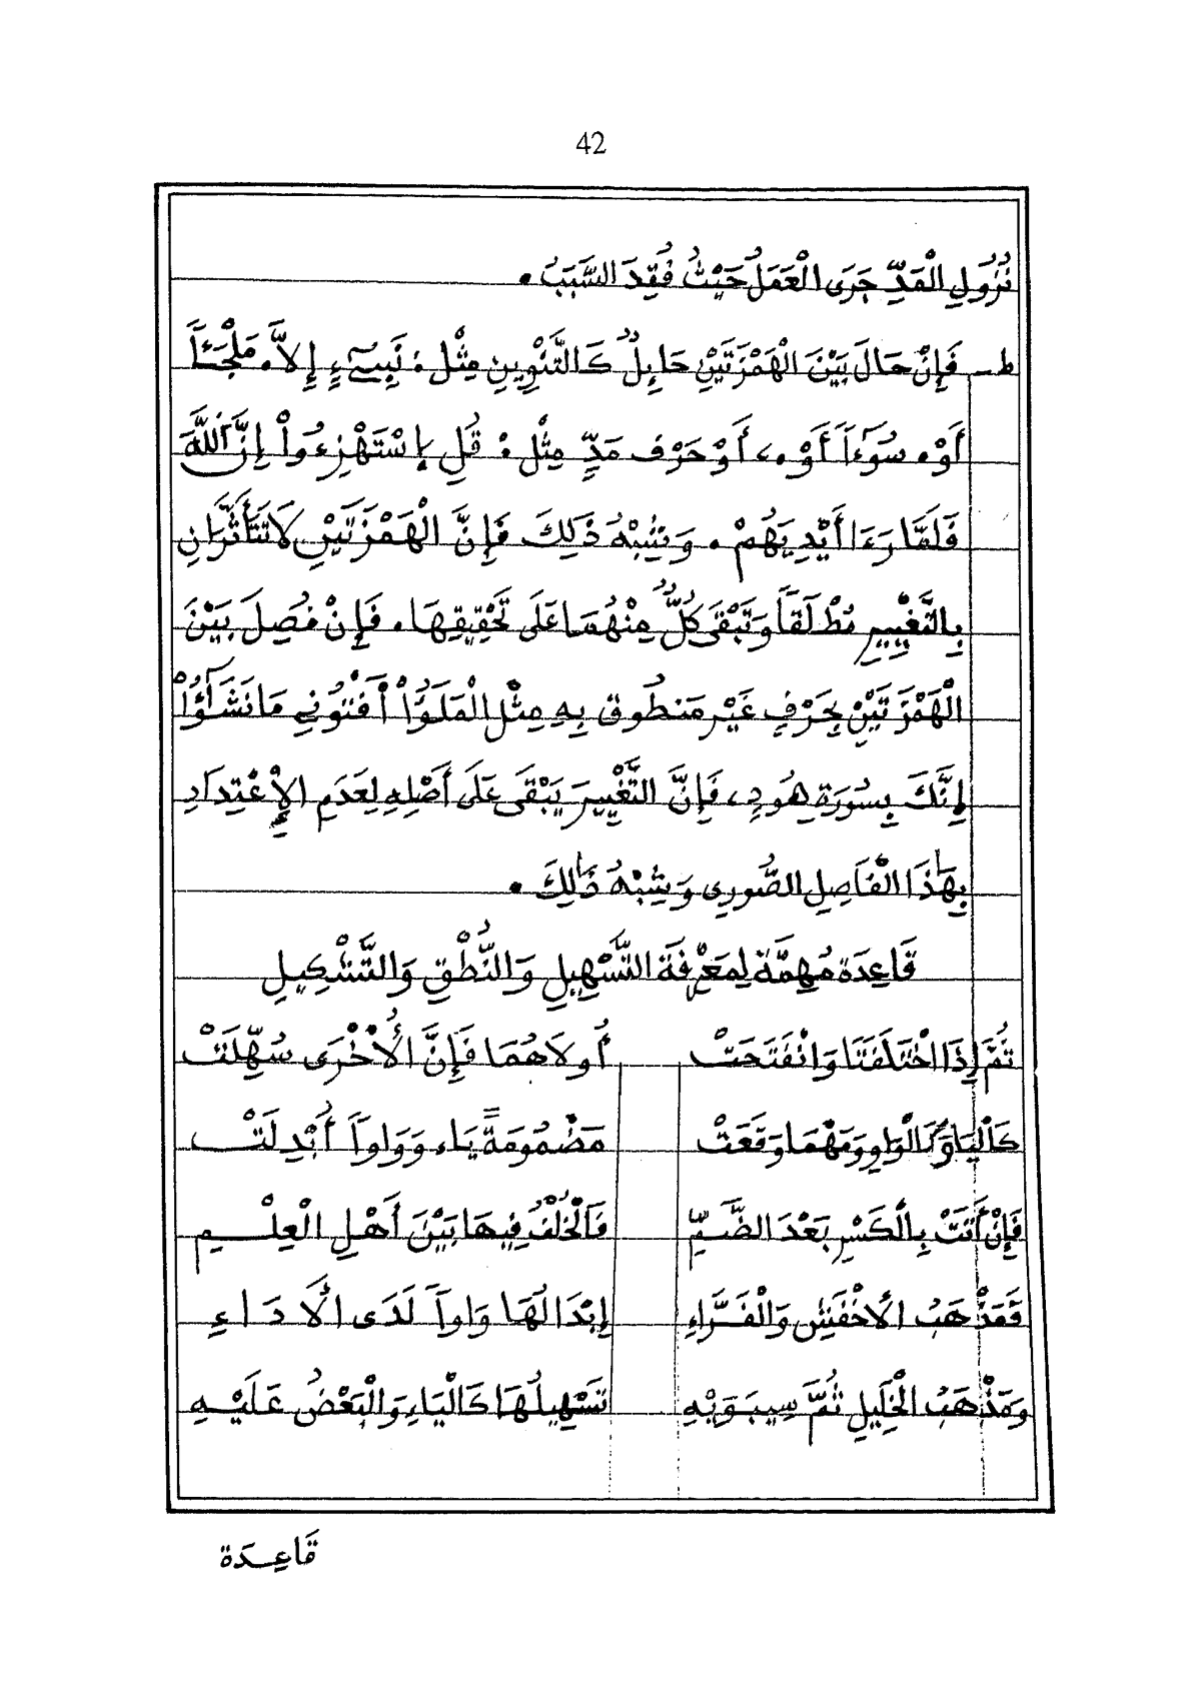 42
نُزُولِ الْمَدِّ جَرَى الْعَمَلُ حَيْثُ فُقِدَ السَّبَبُ.
ط ـ فَإِنْ حَالَ بَيْنَ الْهَمْزَتَيْنِ حَايِلٌ كَالتَّنْوِينِ مِثْلُ: نَبِيٓءٍ إِلَّا. مَلْجَـًٔا
أَوْ. سُوٓءًا أَوْ.، أَوْ حَرْفِ مَدٍّ مِثْلُ: قُلِ إِسْتَهْزِءُوا إِنَّ اللَّهَ
فَلَمَّا رَءَا أَيْدِيَهُمْ. وَشِبْهُ ذَلِكَ فَإِنَّ الْهَمْزَتَيْنِ لَا تَتَأَثَّرَانِ
بِالتَّغْيِيرِ مُطْلَقًا وَتَبْقَى كُلٌّ مِنْهُمَا عَلَى تَحْقِيقِهَا. فَإِنْ فُصِلَ بَيْنَ
الْهَمْزَتَيْنِ بِحَرْفٍ غَيْرِ مَنْطُوقٍ بِهِ مِثْلُ الْمَلَؤُا أَفْتُونِي مَا نَشَٰٓؤُا
إِنَّكَ بِسُورَةِ هُودٍ، فَإِنَّ التَّغْيِيرَ يَبْقَى عَلَى أَصْلِهِ لِعَدَمِ الْإِعْتِدَادِ
بِهَٰذَا الْفَاصِلِ الصُّورِي وَشِبْهُ ذَٰلِكَ.
قَاعِدَة مُهِمَّة لِمَعْرِفَةِ التَّسْهِيلِ وَالنُّطْقِ وَالتَّشْكِيلِ
ثُمَّ إِذَا اخْتَلَفَتَا وَانْفَتَحَتْ أُولَاهُمَا فَإِنَّ الْأُخْرَى سُهِّلَتْ
كَالْيَا وَكَالْوَاوِ وَمَهْمَا وَقَعَتْ مَضْمُومَةً يَاء وَوَاوًا أُبْدِلَتْ
فَإِنْ أَتَتْ بِالْكَسْرِ بَعْدَ الضَّمِّ فَالْخُلْفُ فِيهَا بَيْنَ أَهْلِ الْعِلْمِ
فَمَذْهَبُ الْأَخْفَشِ وَالْفَرَّاءِ إِبْدَالُهَا وَاوًا لَدَى الْأَدَاءِ
وَمَذْهَبُ الْخَلِيلِ ثُمَّ سِيبَوَيْهِ تَسْهِيلُهَا كَالْيَاءِ وَالْبَعْضُ عَلَيْهِ
قَاعِدَة